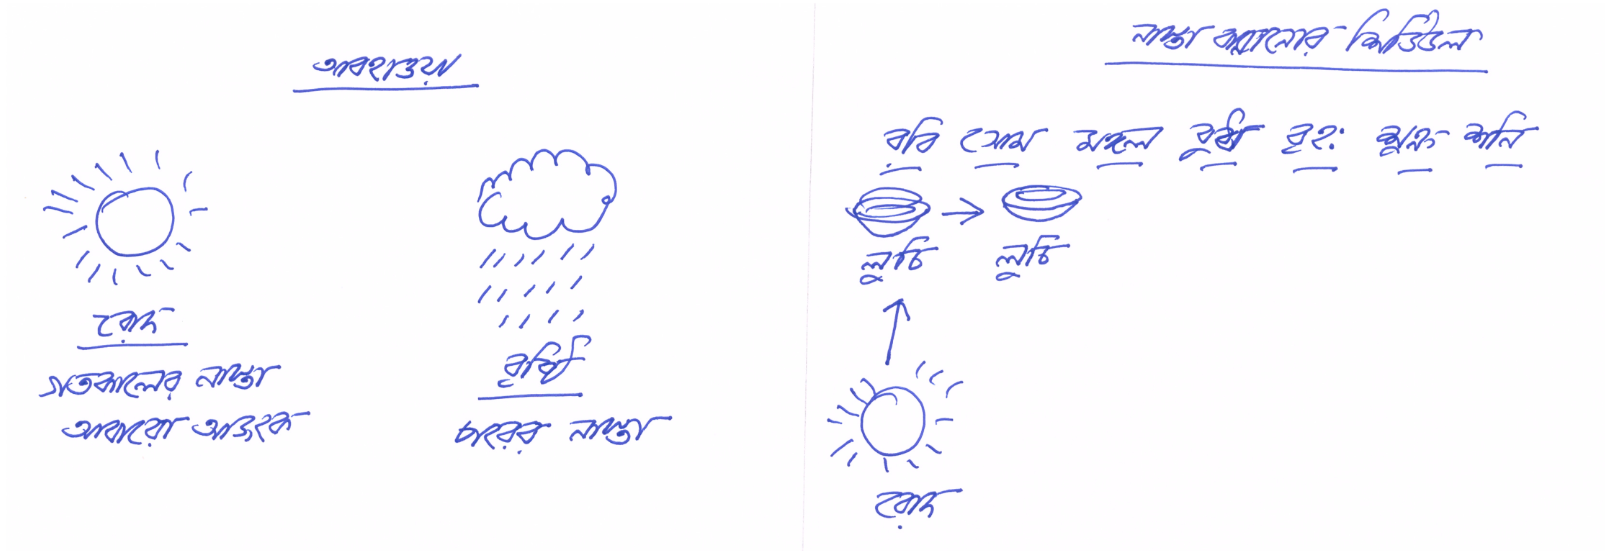 আবহাওয়া
রোদ
গতকালের নাস্তা
আবারো আজকে
বৃষ্টি
পরের নাস্তা
নাস্তা বানানোর শিডিউল
রবি সোম মঙ্গল বুধ বৃহ: শুক্র শনি
লুচি লুচি
রোদ